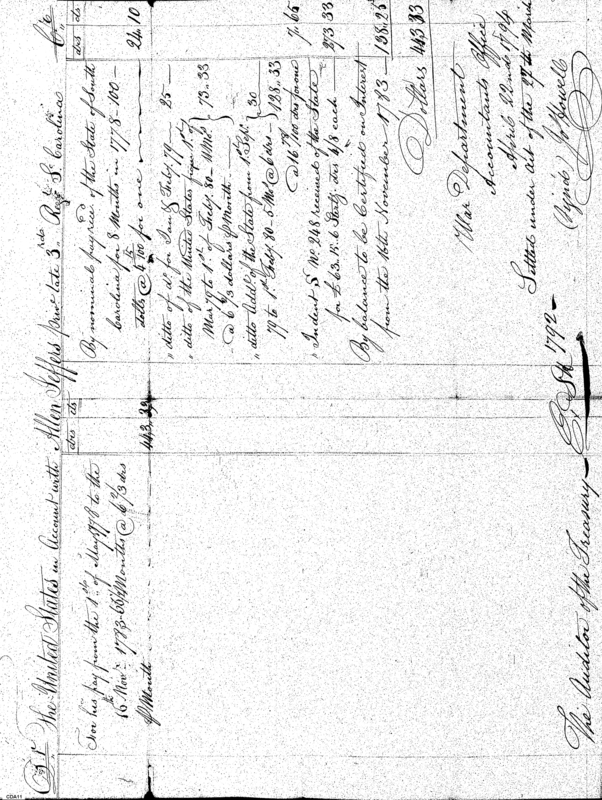 Dr. The United States in Account with Allen Jeffers Priv. late 3rd Regt. So. Carolina Cr.
drs cts
For his pay from the 1st of May 1778 to the
16 Nov. 1783 66½ Months @ 6 2/3 drs
⅌ Month 443.33
drs cts
By nominal pay rec'd of the State of South
Carolina for 8 Months in 1778 - 100 -
dolls @ 4 for one 24 10
" ditto of do. for Jany & Feby. 79 25
" ditto of the United States from 1st
Mar 79 to 1st of Feby. 80 - 11 Mos.
@ 6 2/3 dollars ⅌ Month 73..33
" ditto Addl. of the State from 1st Feby. 30
79 to 1st Feby. 80 - 5 Mo. @ 6 drs 128..33
@ 16 /100 drs for one 7 65
" Indent S No. 248 received of the State
for £63.15.6 Sterlg. drs 4/8 each 273 33
By balance to be Certified on Interest
from the 16th November 1783 138.25
Dollars 443 33
War Department
Accountants Office
April 22nd 1794
Settled under Act of the 27th March
1792
Signed Jo Howell
The Auditor of the Treasury